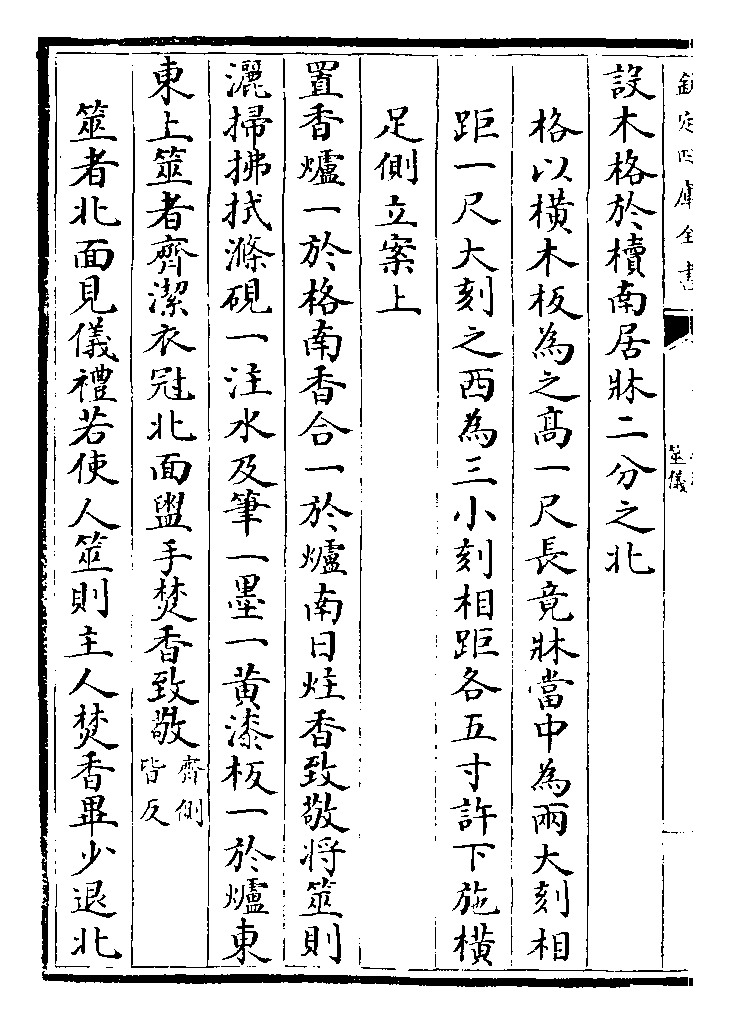 欽定四庫全書
筮儀
設木格於櫝南居牀二分之北
格以横木板為之髙一尺長竟牀當中為兩大刻相
距一尺大刻之西為三小刻相距各五寸許下施横
足側立案上
置香爐一於格南香合一於爐南日炷香致敬将筮則
灑掃拂拭滌硯一注水及筆一墨一黄漆板一於爐東
東上筮者齊潔衣冠北面盥手焚香致敬齊側皆反
筮者北面見儀禮若使人筮則主人焚香畢少退北